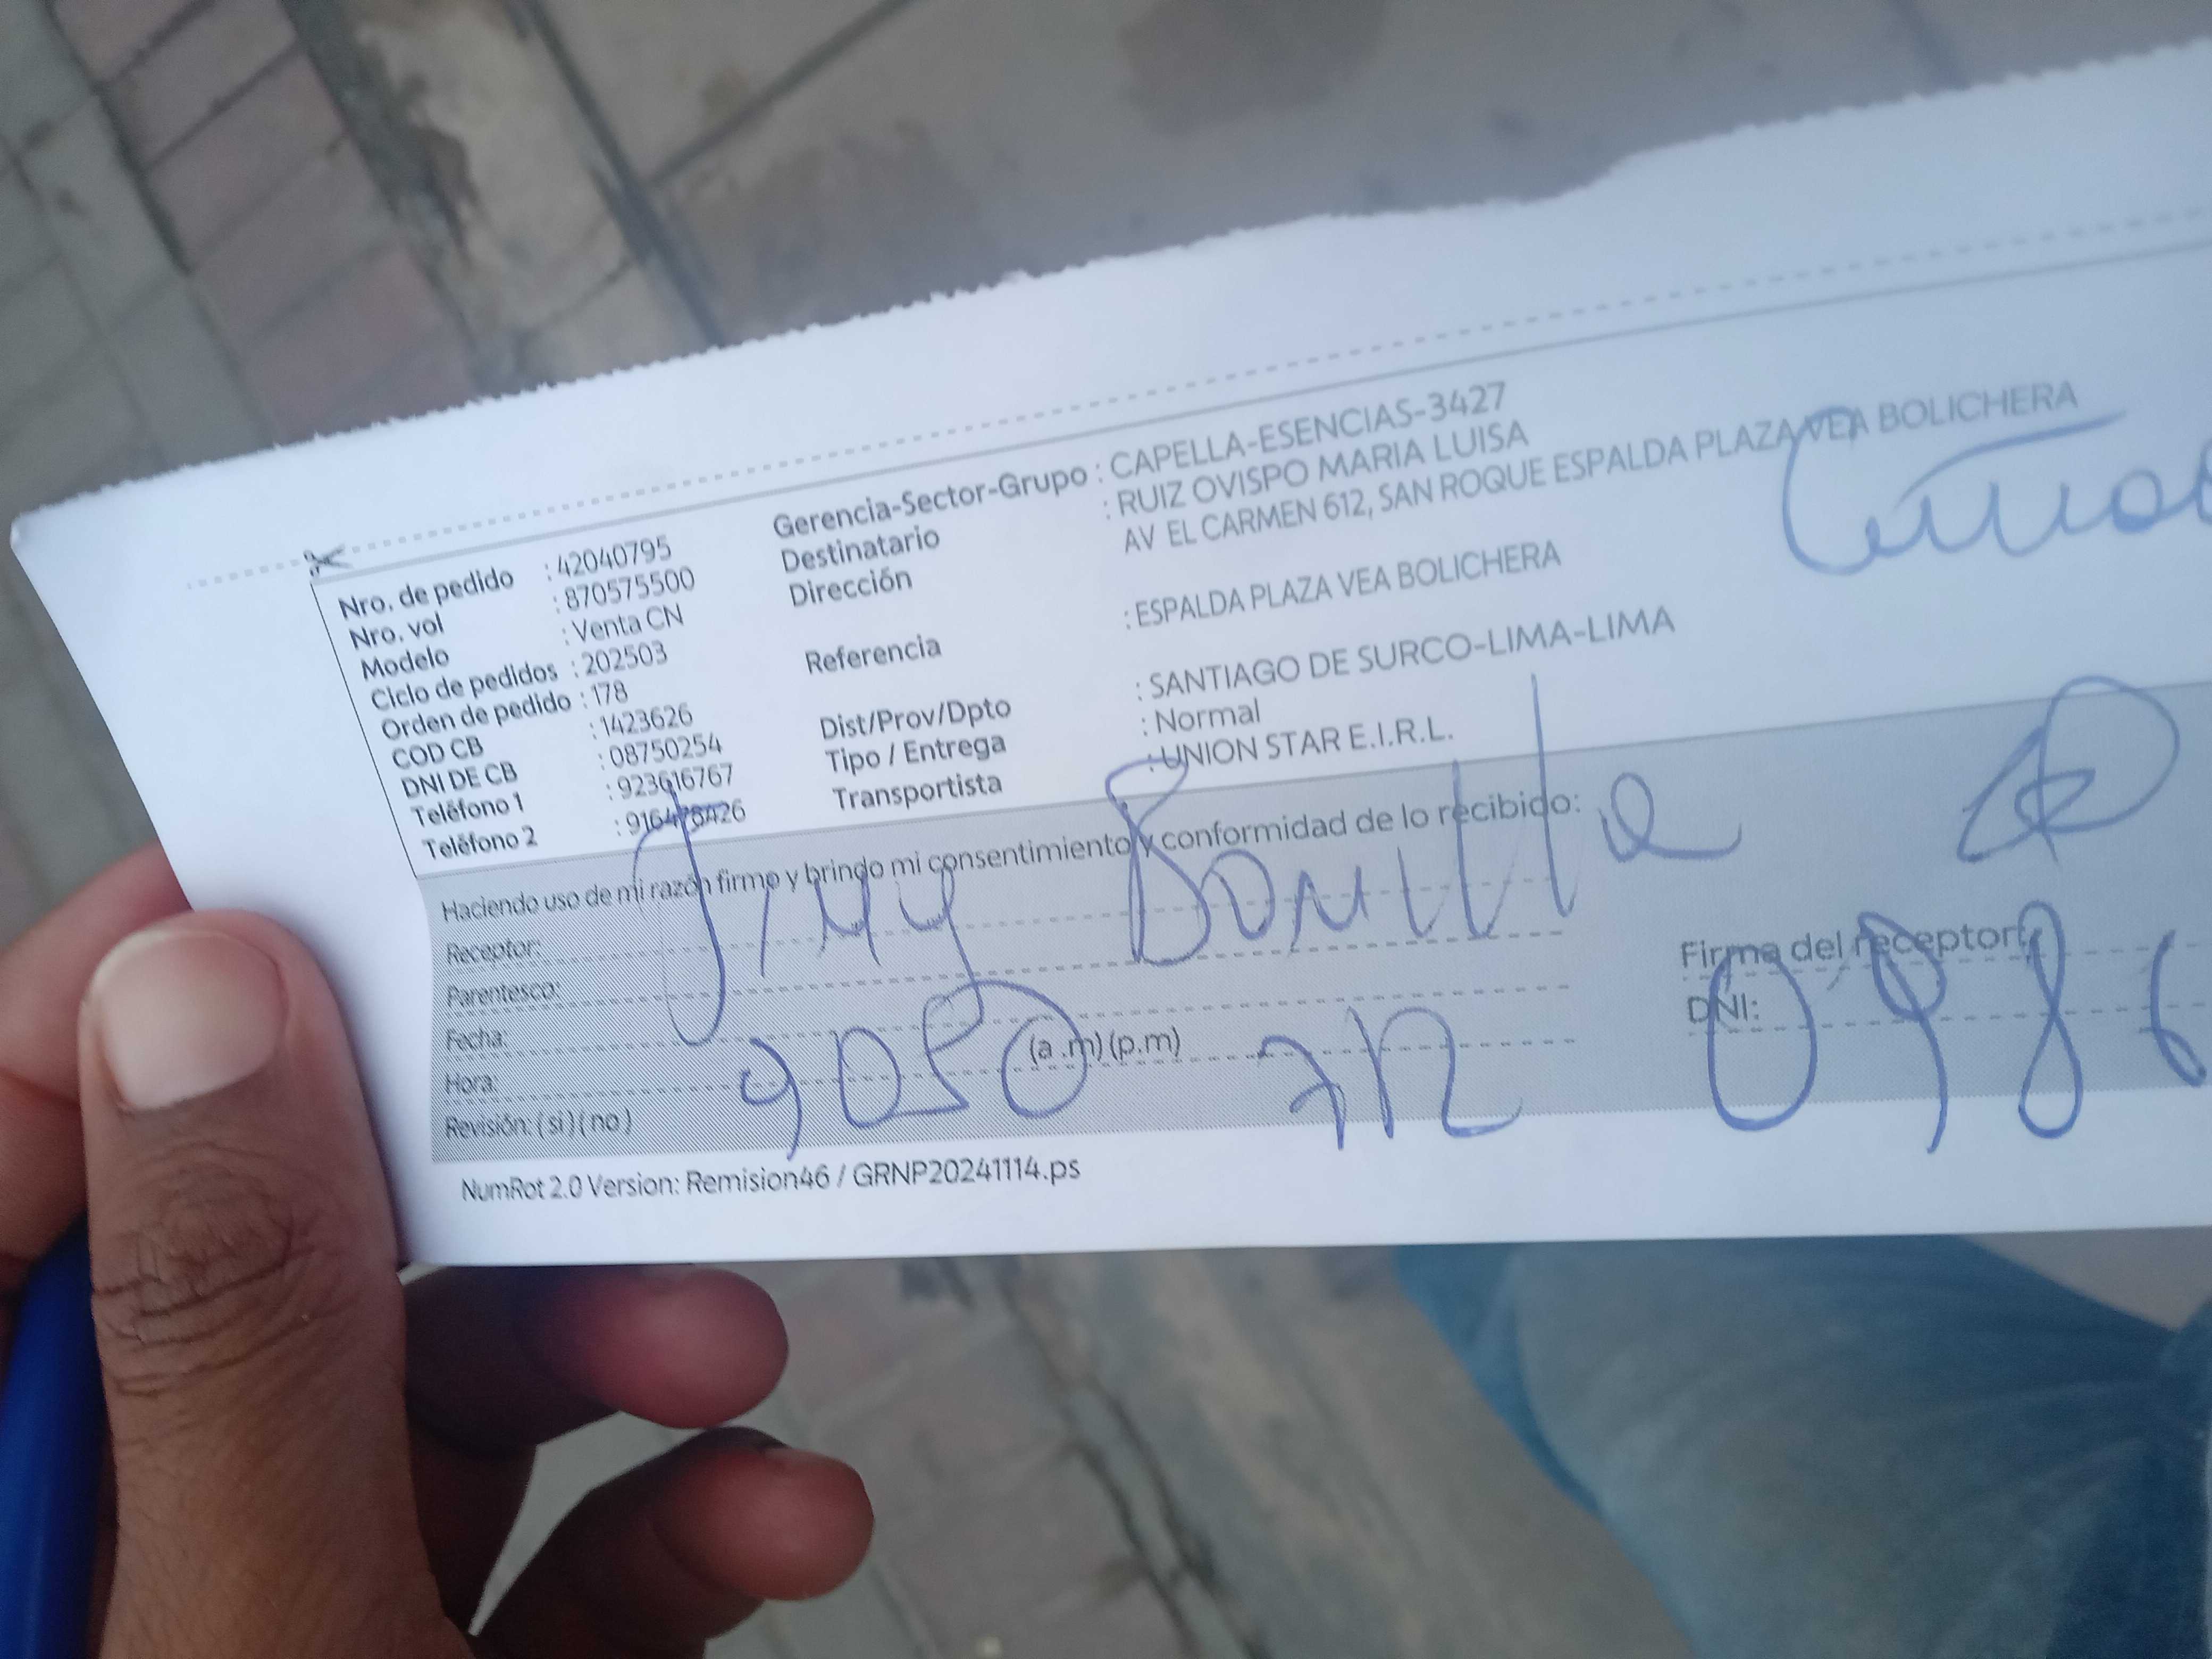 Nro. de pedido : 42040795
Nro. vol : 870575500
Modelo : Venta CN
Ciclo de pedidos : 202503
Orden de pedido : 178
COD CB : 1423626
DNI DE CB : 08750254
Teléfono 1 : 923616767
Teléfono 2 : 916478426
Gerencia-Sector-Grupo : CAPELLA-ESENCIAS-3427
Destinatario : RUIZ OVISPO MARIA LUISA
Dirección AV EL CARMEN 612, SAN ROQUE ESPALDA PLAZA VEA BOLICHERA
Referencia : ESPALDA PLAZA VEA BOLICHERA
Dist/Prov/Dpto : SANTIAGO DE SURCO-LIMA-LIMA
Tipo / Entrega : Normal
Transportista : UNION STAR E.I.R.L.
Haciendo uso de mi razón firmo y brindo mi consentimiento y conformidad de lo recibido:
Receptor: Jimy Bonilla
Parentesco:
Fecha:
Hora: (a .m) (p.m)
Revisión: ( si ) ( no )
9050 712
Firma del receptor:
DNI: 0986
NumRot 2.0 Version: Remision46 / GRNP20241114.ps